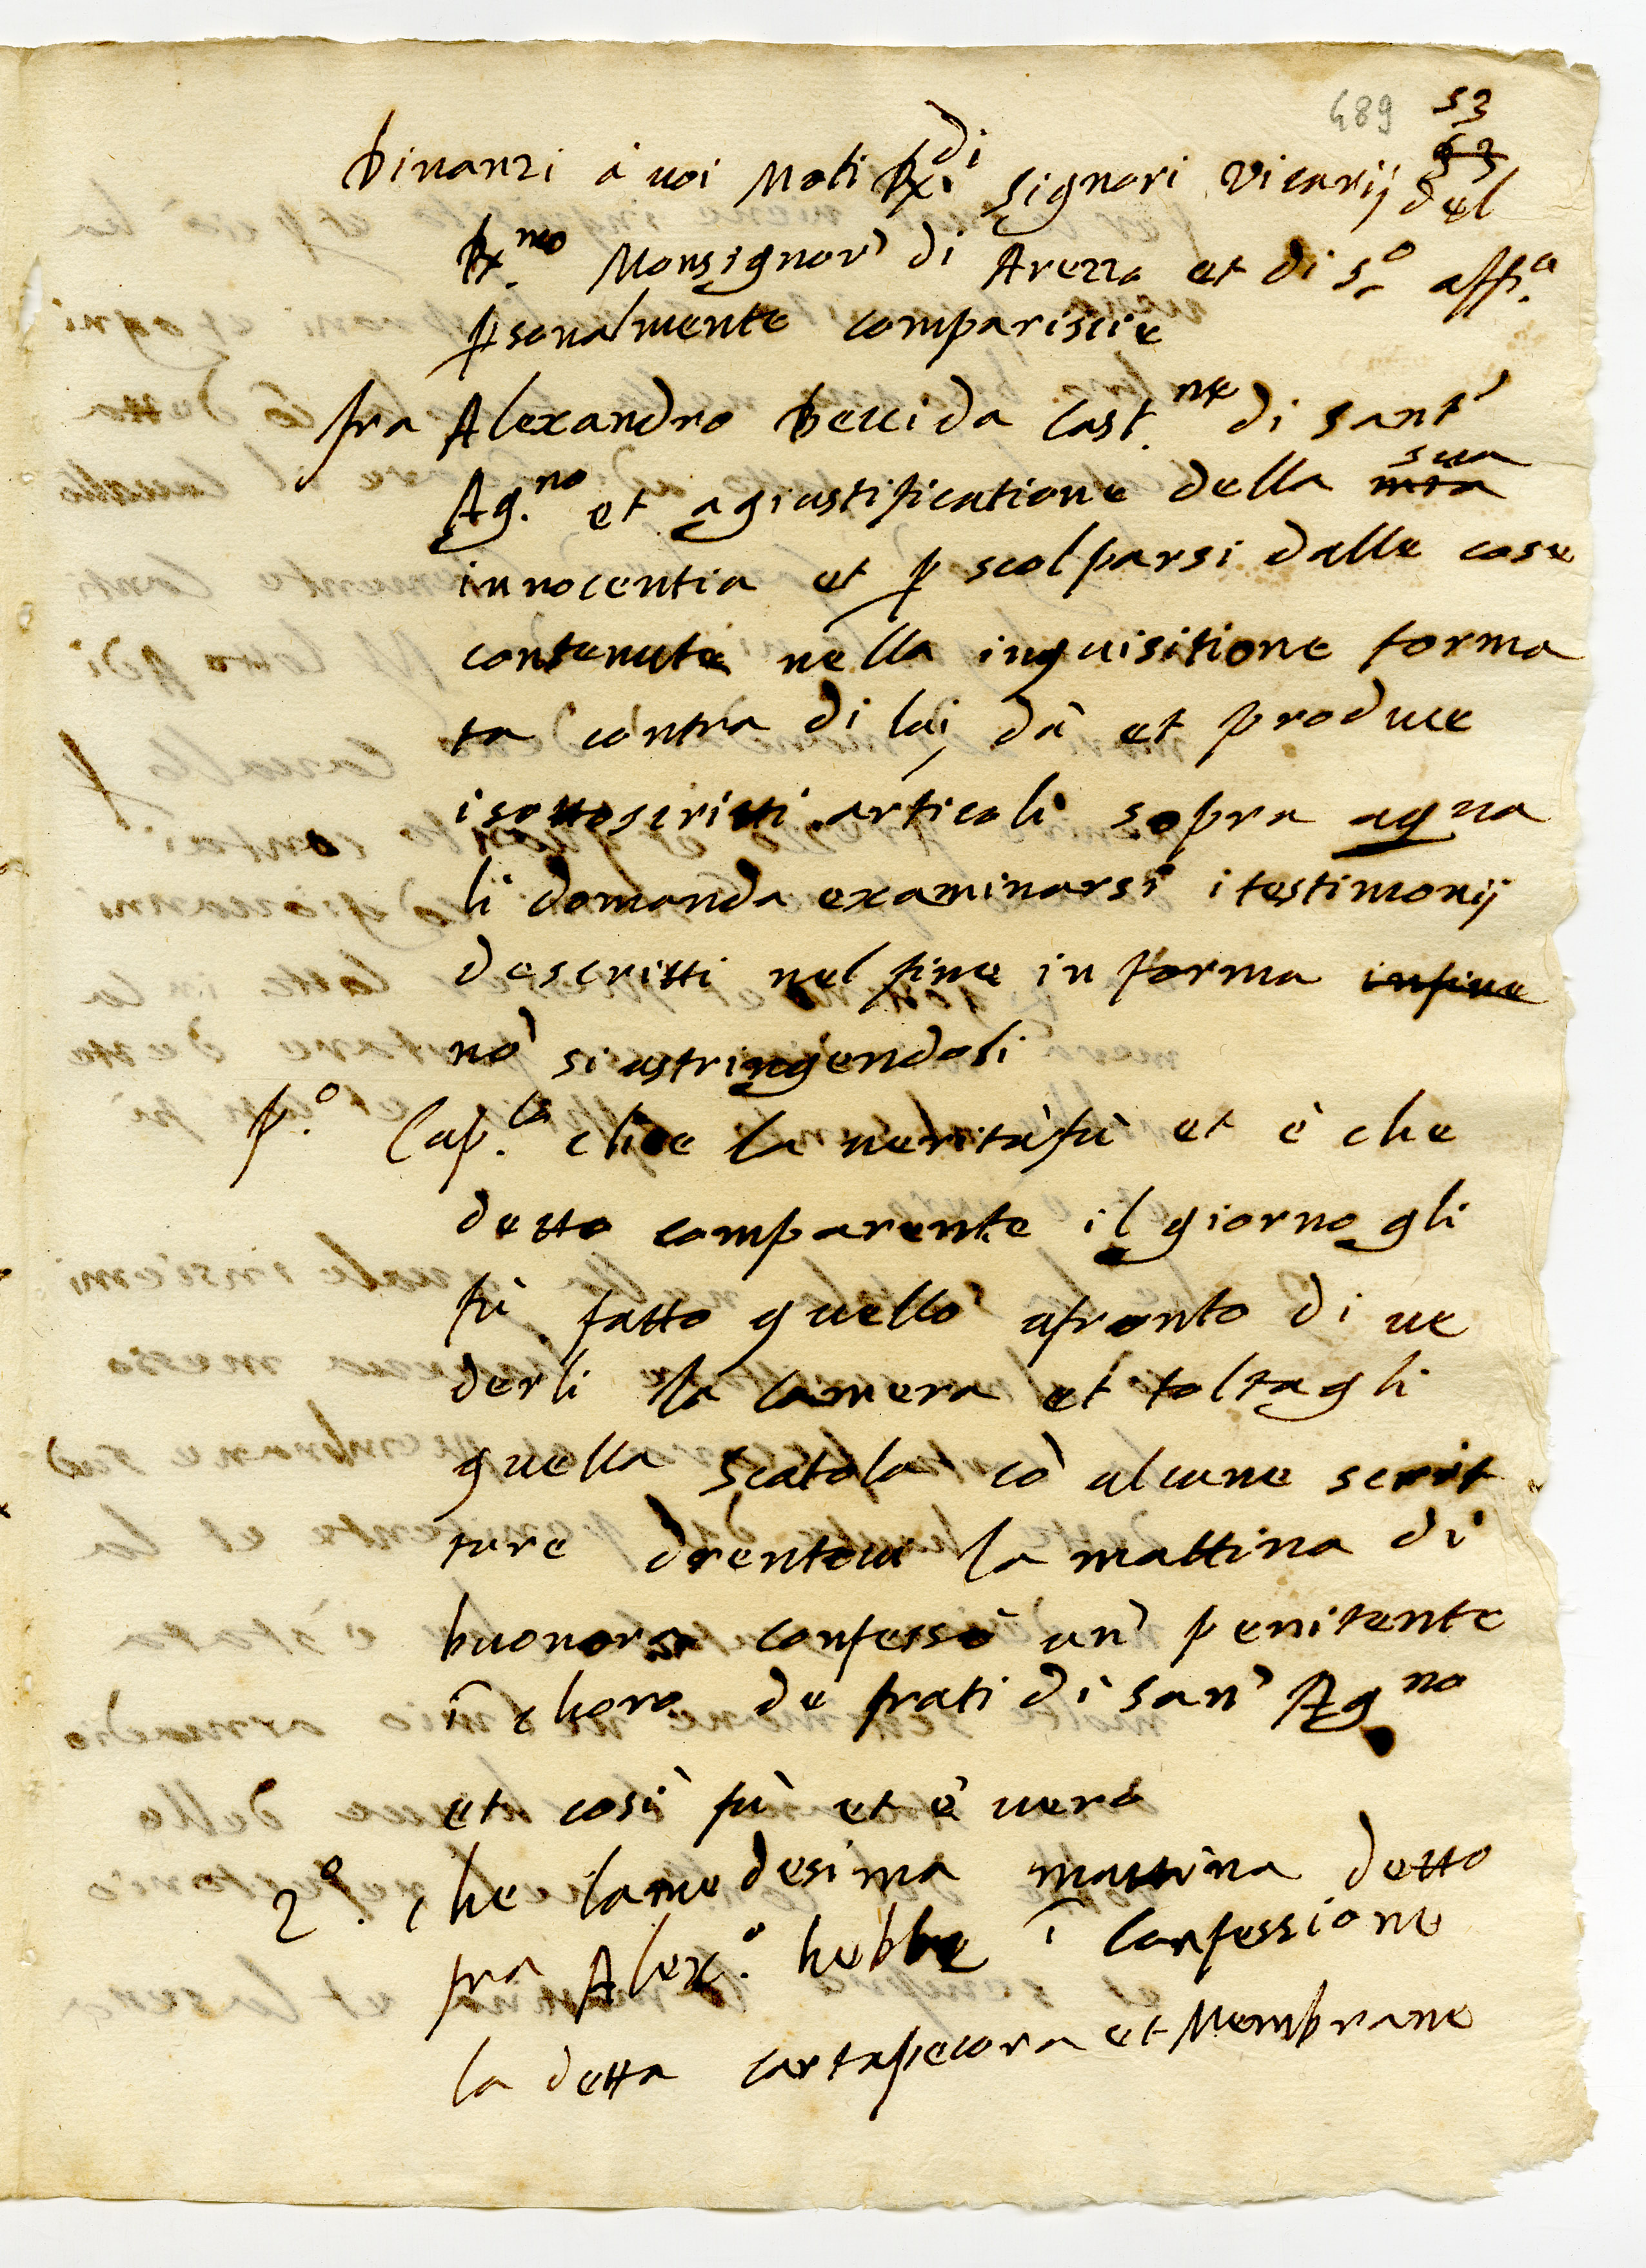 489 53
63
Dinanzi à voi Molti R.di Signori Vicarij del
R.mo Monsignor' di Arezzo et di s.o affi.o
p̱sonalmente compariscie
fra Alexandro Becci da Cast.ne di Sant'
Ag.no et agiustificatione della sua mia
innocentia et p̱ scolparsi dalle cose
contenute nella inquisitione forma
ta contra di lui, dà et produce
i sottoscritti articoli sopra aqua
li domanda examinarsi i testimonij
descritti nel fine in forma infine
nò si astringendosi
p.o Cap.lo che la verità fù et è che
detto comparente il giorno gli
fù fatto quello afronto di ve
derli la camera et toltagli
quella scatola cò alcune scrit
ture drentovi la mattina di
buonora confessò un' penitente
ī choro de frati di San' Ag.no
et così fù et è vero
2.o che la medesima mattina detto
fra Alex.o hebbe ī confessione
la detta cartapecora et Membrane